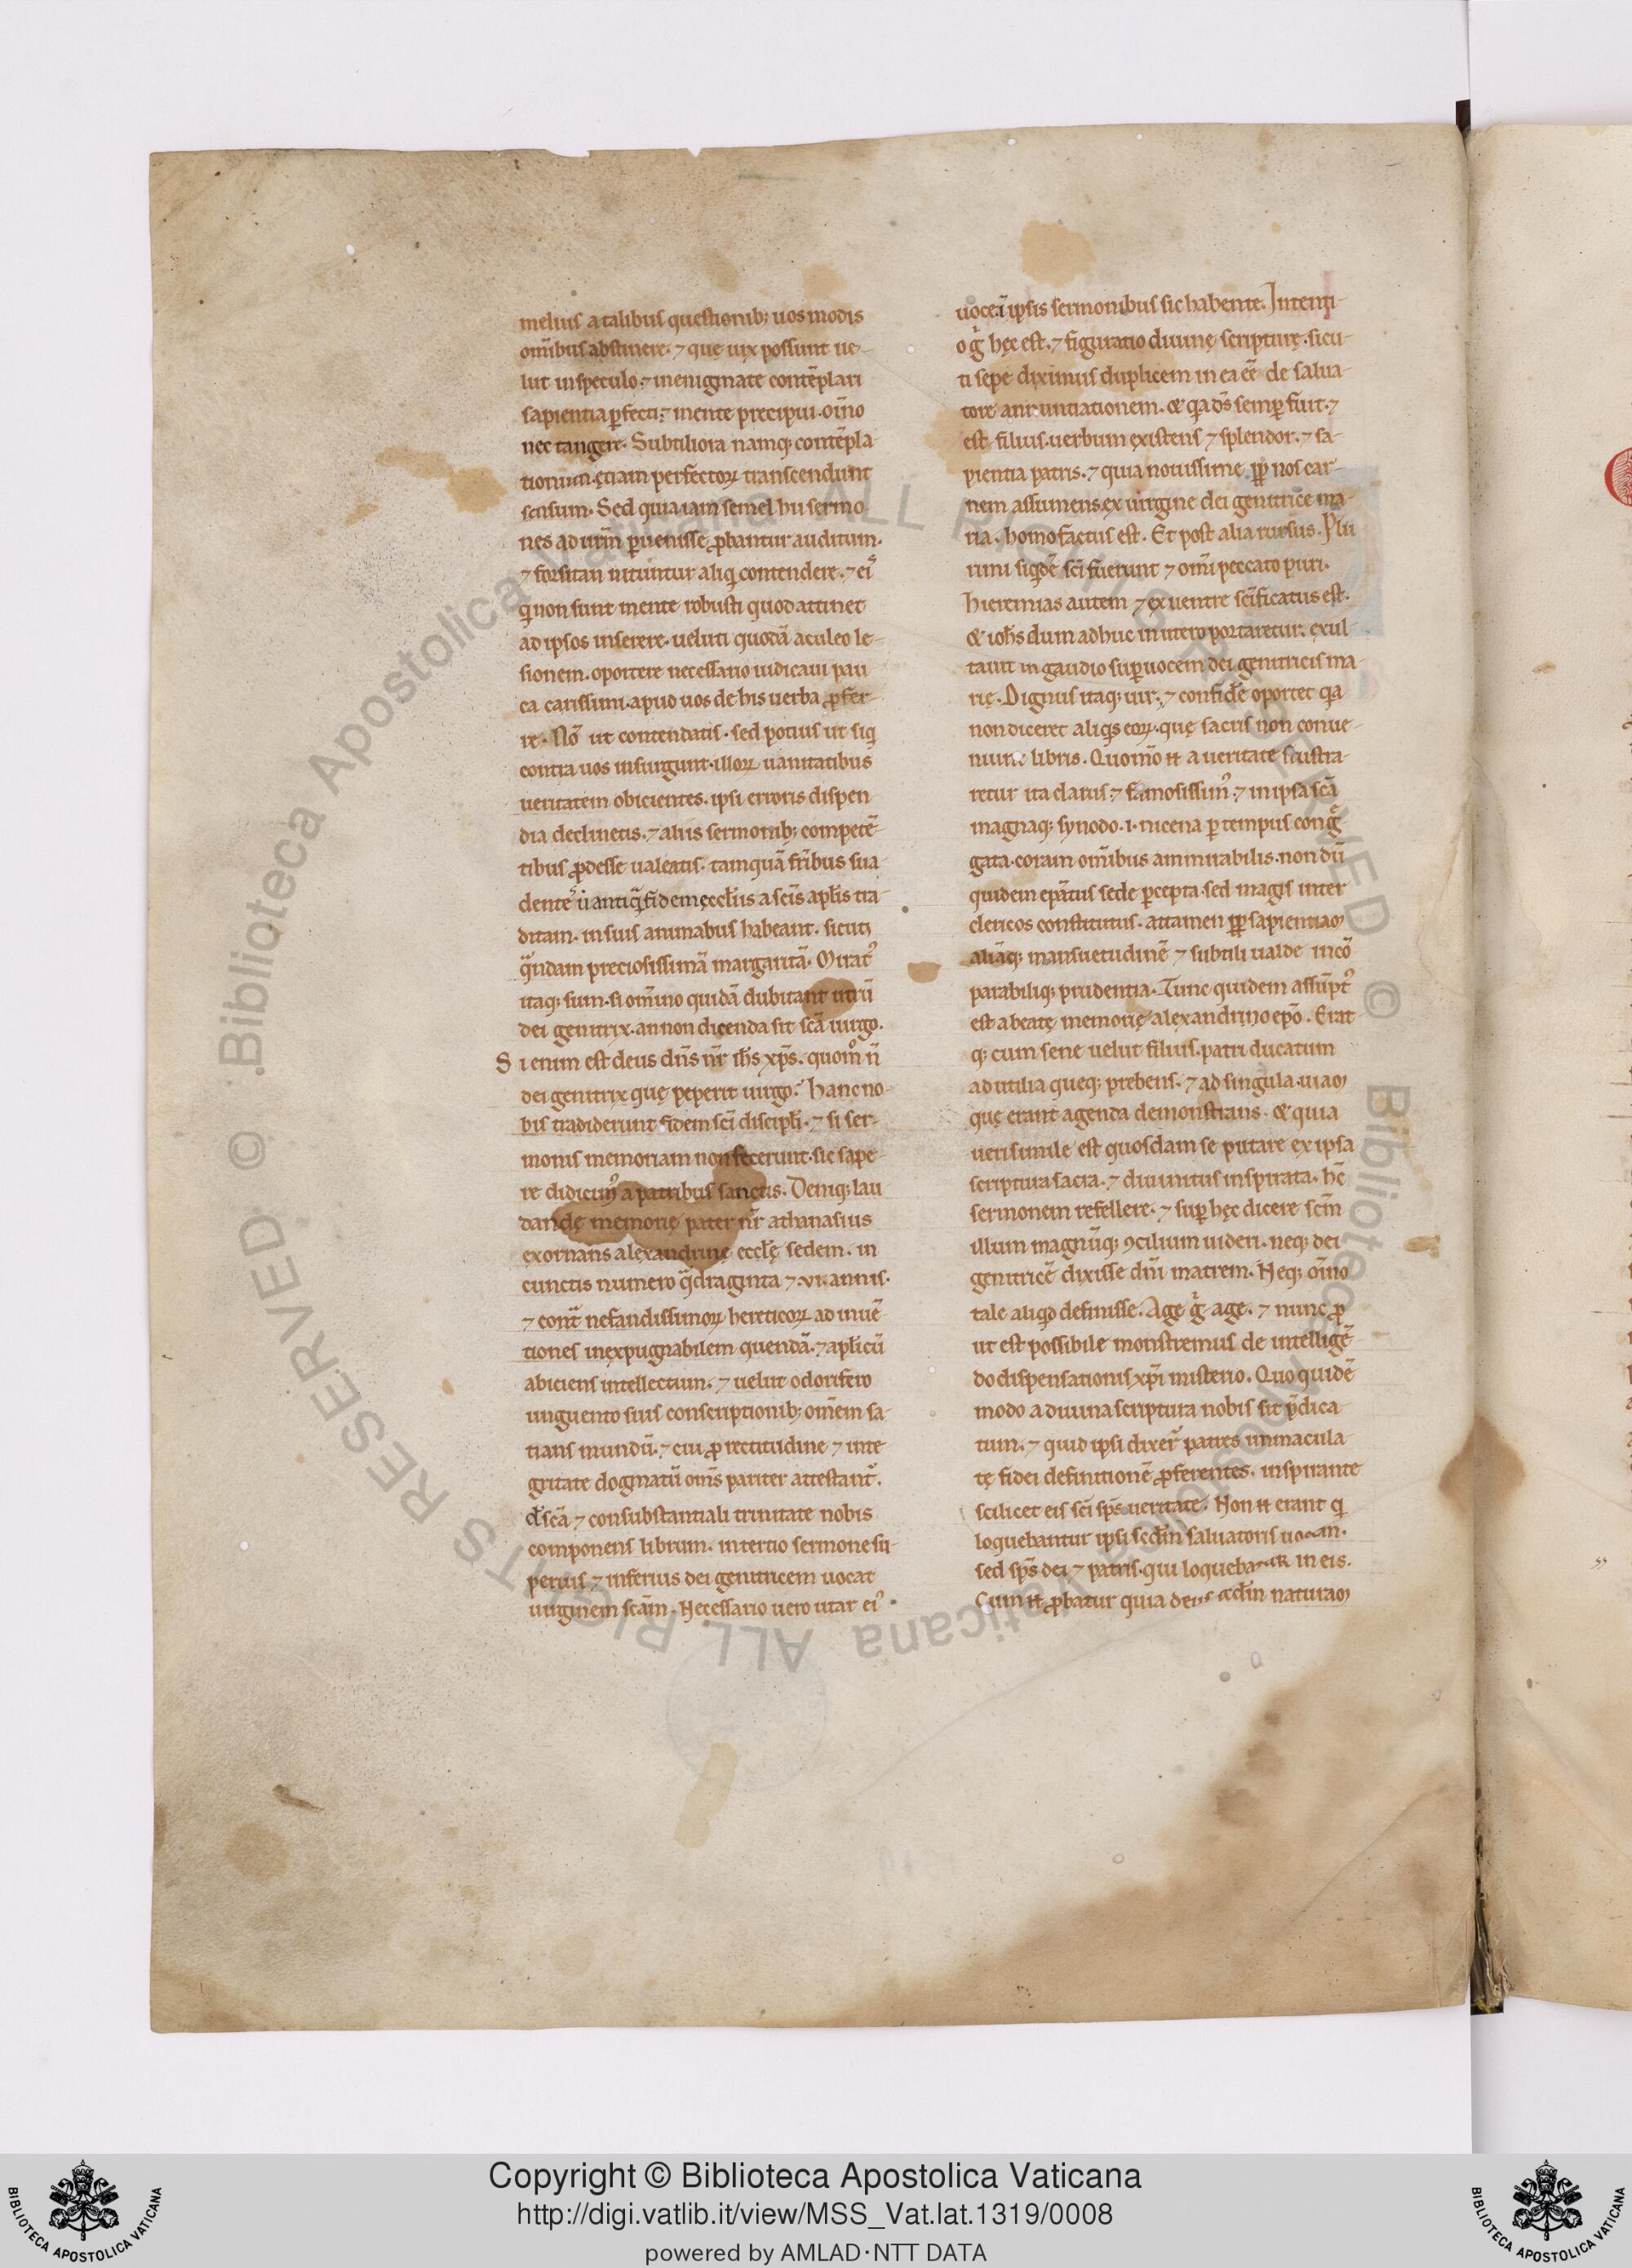 melius a talibus questionib; uos modis
omībus abstinere. ⁊ quę uix possunt ue-
lut in speculo. ⁊ in enigmate contēplari
sapientia ꝑfecti. ⁊ mente precipui. oīno
nec tangere. Subtiliora namq; contēpla
tionum. ętiam perfectoꝝ transcendunt
sensum. Sed quia iam semel hii sermo
nes ad urm̄ ꝑuenisse ꝓbantur auditum.
⁊ forsitan nituntur aliqi contendere. ⁊ ei᾽
qi non sunt mente robusti quod attinet
ad ipsos inserere. ueluti quodā aculeo le-
sionem. oportere necessario iudicaui pau
ca carissimi. apud uos de his uerba ꝓfer-
re. Nō ut contendatis. sed potius ut siqi
contra uos insurgunt. illoꝝ uanitatibus
ueritatem obicientes. ipsi erroris dispen
dia declinetis. ⁊ aliis sermonib; competē-
tibus ꝓdesse ualeatis. tamquā fr̄ibus sua
dente᾽ ū antiquā fidem ęcclīis a scīs apl̄is tra
ditam. in suis animabus habeant. sicuti
quandam preciosissimā margaritā. Mirat᾽
itaq; sum. si omīno quidā dubitant utrū
dei genitrix. an non dicenda sit scā uirgo.
Si enim est deus dn̄s nr̄ ih̄s xp̄s. quom̊ n̄
dei genitrix quę peperit uirgo? Hanc no-
bis tradiderunt fidem scī discipl̄i. ⁊ si ser-
monis memoriam non fecerunt. sic sape-
re didicim᾽ a patribus sanctis. Deniq; lau
dandę memorię pater nr̄ athanasius
exornans alexandrinę eccl̄ę sedem. in
cunctis numero quadraginta ⁊ .vi. annis.
⁊ cont̄ nefandissimoꝝ hereticoꝝ ad inuē-
tiones inexpugnabilem quendā. ⁊ apl̄icū
abiciens intellectum. ⁊ uelut odorifero
unguento suis conscriptionib; om̄em sa-
tians mundū. ⁊ cui ꝓ rectitudine ⁊ inte
gritate dogmatū om̄s pariter attestant᾽.
de scā ⁊ consubstantiali trinitate nobis
componens librum. in tertio sermone su-
perius ⁊ inferius dei genitricem uocat
uirginem scām. Necessario uero utar ei᾽
uoce ī ipsis sermonibus sic habente. Intenti-
o ḡ hęc est. ⁊ figuratio diuinę scripturę. sicu-
ti sepe diximus duplicem in ea eē de salua-
tore annuntiationem. & qa ds̄ semꝑ fuit. ⁊
est filius. uerbum ęxistens ⁊ splendor. ⁊ sa-
pientia patris. ⁊ quia nouissime ꝓp nos car-
nem assumens ex uirgine dei genitrice ma-
ria. homo factus est. Et post alia rursus. Plu
rimi siqdē scī fuerunt ⁊ omī peccato puri.
hieremias autem ⁊ ex uentre scīficatus est.
& ioh̄s dum adhuc in utero portaretur. ęxul-
tauit in gaudio suꝑ uocem dei genitricis ma-
rię. Dignus itaq; uir. ⁊ confidē oportet qa
non diceret aliqs eoꝝ. quę sacris non conue-
niunt libris. Quom̊ō n̄ a ueritate frustra-
retur ita clarus. ⁊ famosissim᾽. ⁊ in ipsa scā
magnaq; synodo .i. nicena ꝑ tempus cong̃-
gata. coram omībus ammirabilis. non dū
quidem epātus sede ꝑcepta. sed magis inter
clericos constitutus. attamen ꝓp sapientiam
aliāq; mansuetudinē ⁊ subtili ualde incō
parabiliq; prudentia. Tunc quidem assūpt᾽
est a beatę memorię alexandrino epō. Erat-
q; cum sene uelut filius. patri ducatum
ad utilia queq; prebens. ⁊ ad singula. uiam
quę erant agenda demonstrans. & quia
uerisimile est quosdam se putare ex ipsa
scriptura sacra. ⁊ diuinitus inspirata. hc̄
sermonem refellere. ⁊ suꝑ hęc dicere scīm
illum magnūq; ꝯcilium uideri. neq; dei
genitricē dixisse dn̄i matrem. Neq; oīno
tale aliqd definisse. Age ḡ age. ⁊ nunc ꝓ
ut est possibile monstremus de intelligē-
do dispensationis xp̄i misterio. Quo quidē
modo a diuina scriptura nobis sit p̄dica-
tum. ⁊ quid ipsi dixer᾽ patres immacula-
tę fidei definitionē ꝓferentes. inspirante
scilicet eis scī sp̄s ueritate. Non n̄ erant qi
loquebantur ipsi scdm̄ saluatoris uocem.
sed sp̄s dei ⁊ patris. qui loquebatur in eis.
Cum n̄ ꝓbatur quia deus scdm̄ naturam
Copyright © Biblioteca Apostolica Vaticana
http://digi.vatlib.it/view/MSS_Vat.lat.1319/0008
powered by AMLAD·NTT DATA